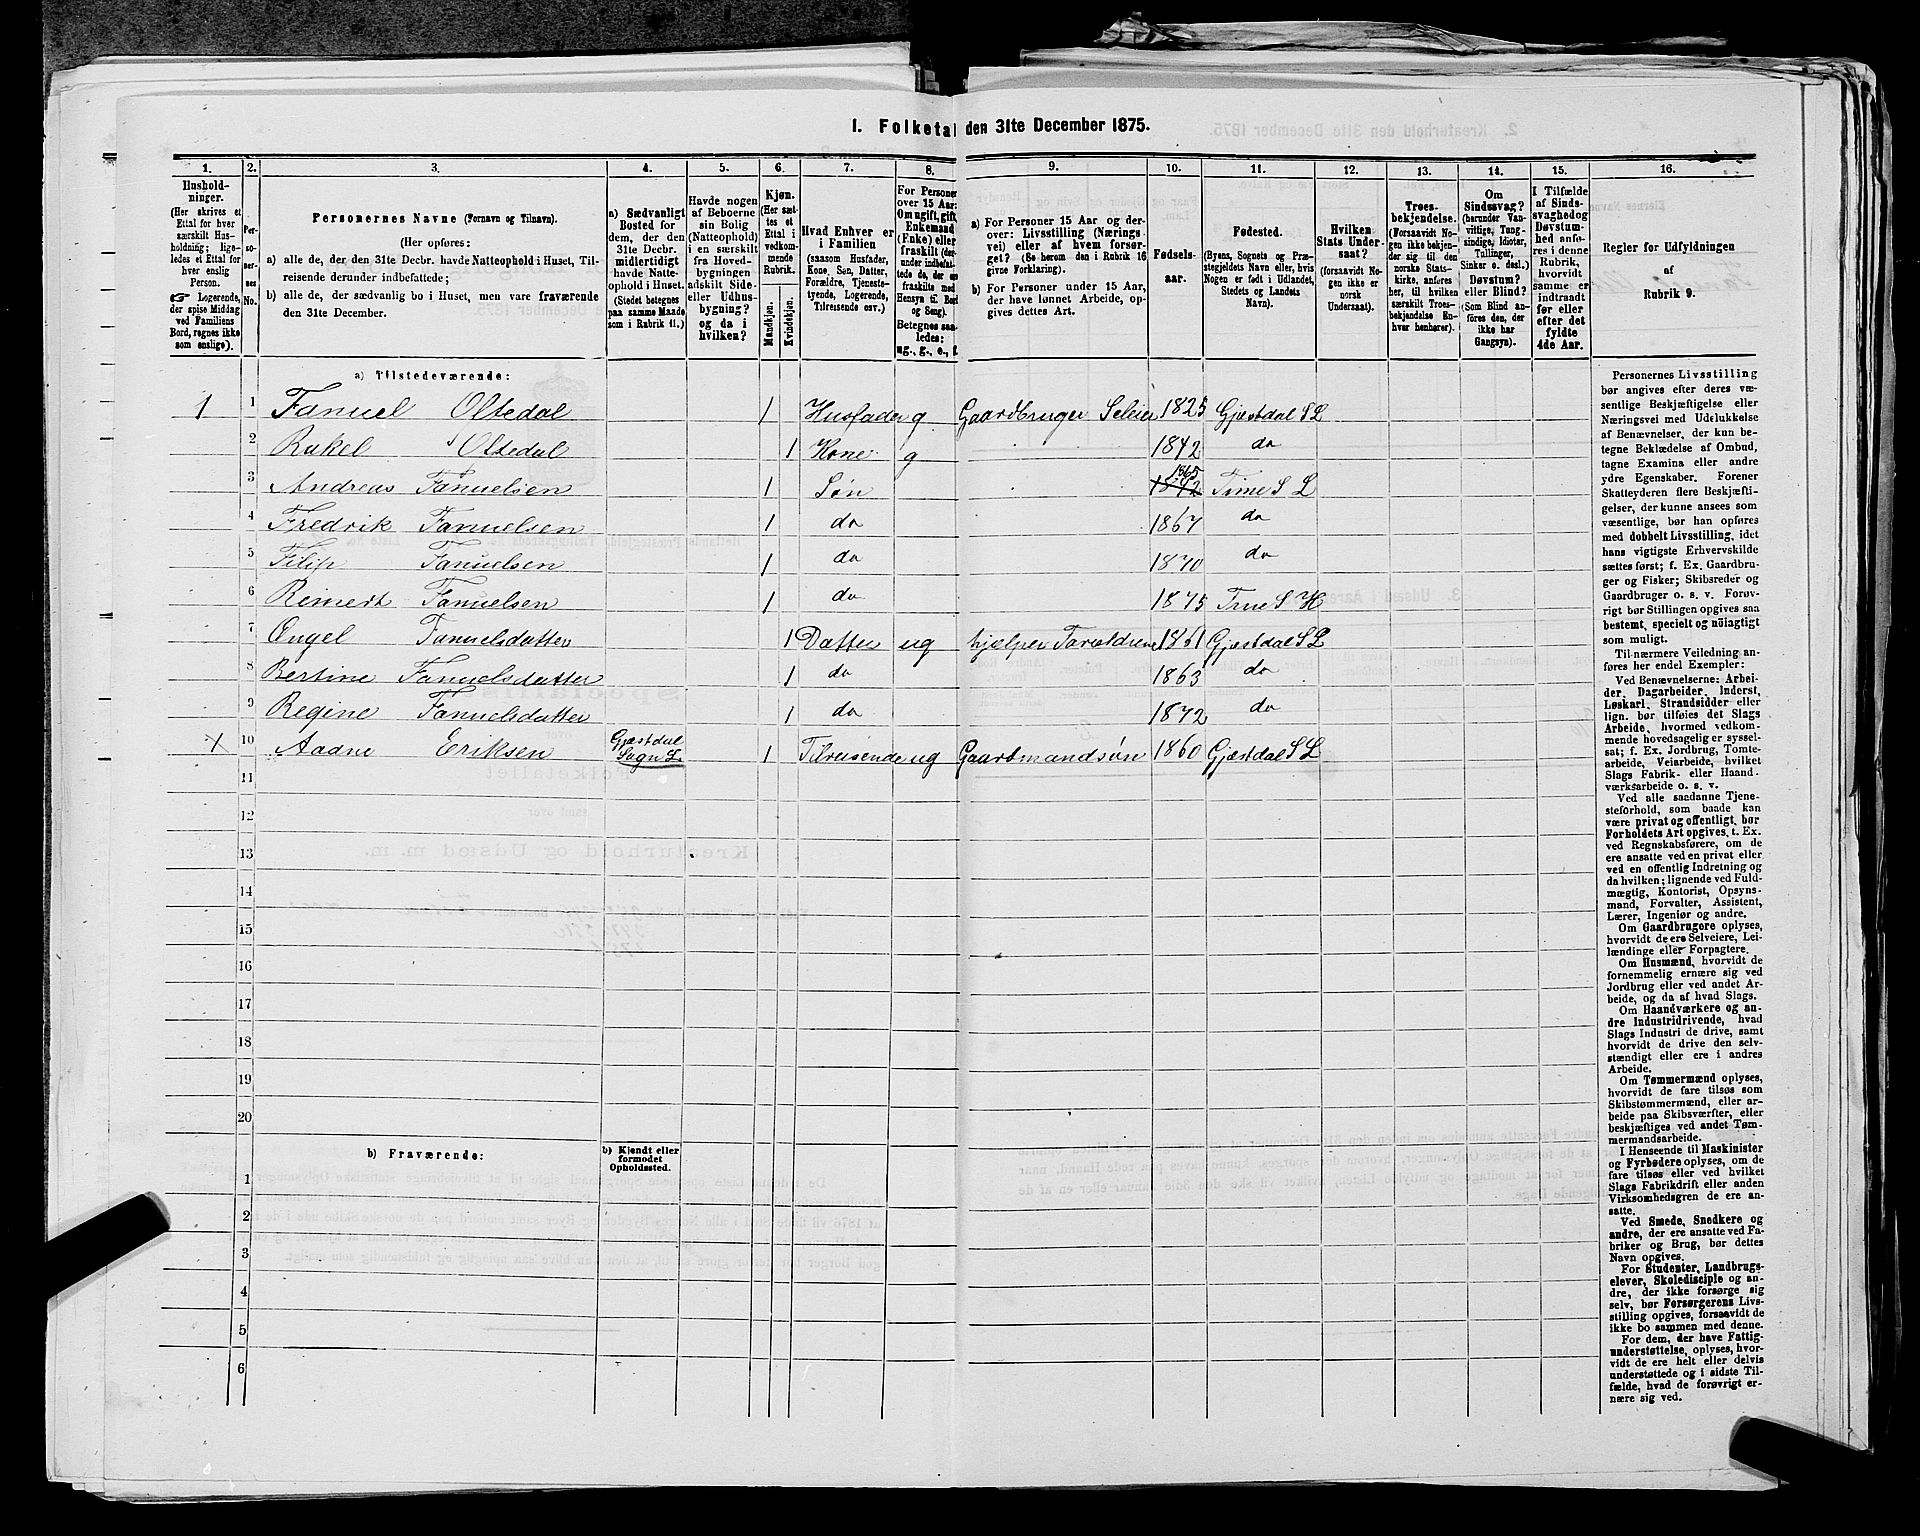 1. Folketal den 31te December 1875.
1. 2. 3. 4. 5. 6. 7. 8. 9. 10. 11. 12. 13. 14. 15. 16.
Hushold-
ninger.
(Her skrives et
Ettal for hver
særskilt Hus-
holdning; lige-
ledes et Ettal for
hver enslig
Person.
☞ Logerende,
der spise Middag
ved Familiens
Bord, regnes ikke
som enslige).
Per-
so-
ner-
nes
No.
Personernes Navne (Fornavn og Tilnavn).
(Her opføres:
a) alle de, der den 31te Decbr. havde Natteophold i Huset, Til-
reisende derunder indbefattede;
b) alle de, der sædvanlig bo i Huset, men vare fraværende
den 31te December.
a) Sædvanligt
Bosted for
dem, der den
31te Decbr.
midlertidigt
havde Natte-
ophold i Huset.
(Stedet betegnes
paa samme Maade
som i Rubrik 11.)
Havde nogen
af Beboerne
sin Bolig
(Natteophold)
i en særskilt
fra Hoved-
bygningen
adskilt Side-
eller Udhus-
bygning?
og da i
hvilken?
Kjøn.
(Her sæt-
tes et
Ettal i
vedkom-
mende
Rubrik.
Mandkjøn.
Kvindekjøn.
Hvad Enhver er
i Familien
(saasom Husfader,
Kone, Søn, Datter,
Forældre, Tjeneste-
tyende, Logerende,
Tilreisende osv.)
For Personer
over 15 Aar:
Om ugift, gift,
Enkemand
(Enke) eller
fraskilt
Betegnes saa-
ledes:
ug., g., e., f.
a) For Personer 15 Aar og der-
over: Livsstilling (Nærings-
vei) eller af hvem forsør-
get? (Se herom den i Rubrik 16
givne Forklaring).
b) For Personer under 15 Aar,
der have lønnet Arbeide, op-
gives dettes Art.
Fødsels-
aar.
Fødested.
(Byens, Sognets og Præ-
stegjeldets Navn eller, hvis
Nogen er født i Udlandet,
Stedets og Landets
Navn).
Hvilken
Stats Under-
saat?
(forsaavidt No-
gen ikke er
norsk
Undersaat).
Troes-
bekjendelse.
(Forsaavidt No-
gen ikke bekjen-
der sig til den
norske Stats-
kirke, anføres
her, til hvilken
særskilt Troes-
bekjendelse En-
hver henhører).
Om
Sindssvag?
(herunder Van-
vittige, Tung-
sindige, Idioter,
Tullinger,
Sinker o. desl.)
Døvstum?
eller Blind?
(Som Blind an-
føres den, der
ikke har
Gangsyn).
I Tilfælde
af Sinds-
svaghed og
Døvstum-
hed anfø-
res i denne
Rubrik,
hvorvidt
samme er
indtraadt
før eller
efter det
fyldte
4de Aar.
Regler for Udfyldningen
af
Rubrik 9.
a) Tilstedeværende:
1 1 Fanuel Oltedal 1 Husfader g Gaardbruger Seleier 1825 Gjæstdal S L
2 Rakel Oltedal 1 Kone g 1842 do
3 Andreas Fanuelsen 1 Søn 1842 1865 Time S L
4 Fredrik Fanuelsen 1 do 1867 do
5 Filip Fanuelsen 1 do 1870 do
6 Reinert Fanuelsen 1 do 1875 Time S H
7 Engel Fanuelsdatter 1 Datter ug hjelper Foreldrene 1861 Gjæstdal S L
8 Bertine Fanuelsdatter 1 do 1863 do
9 Regine Fanuelsdatter 1 do 1872 do
10 Aadne Eriksen Gjæstdal Sogn L. 1 Tilreisende ug Gaardmandsøn 1860 Gjæstdal S L
11
12
13
14
15
16
17
18
19
20
b) Fraværende:
b) Kjendt eller
formodet
Opholdssted.
1
2
3
4
5
6
Personernes Livsstilling
bør angives efter deres væ-
sentlige Beskjæftigelse eller
Næringsvei med Udelukkelse
af Benævnelser, der kun be-
tegne Beklædelse af Ombud,
tagne Examina eller andre
ydre Egenskaber. Forener
Skatteyderen flere Beskjæfti-
gelser, der kunne ansees som
væsentlige, bør han opføres
med dobbelt Livsstilling, idet
hans vigtigste Erhvervskilde
sættes først; f. Ex. Gaardbru-
ger og Fisker; Skibsreder og
Gaardbruger o. s. v. Forøv-
rigt bør Stillingen opgives saa
bestemt, specielt og nøiagtigt
som muligt.
Til nærmere Veiledning an-
føres her endel Exempler:
Ved Benævnelserne: Arbei-
der, Dagarbeider, Inderst,
Løskarl, Strandsidder eller
lign. bør tilføies det Slags
Arbeide, hvormed vedkom-
mende hovedsagelig er syssel-
sat; f. Ex. Jordbrug, Tomte-
arbeide, Veiarbeide, hvilket
Slags Fabrik- eller Haand-
værksarbeide o. s. v.
Ved alle saadanne Tjene-
steforhold, som baade kan
være privat og offentligt, bør
Forholdets Art opgives, t. Ex.
ved Regnskabsførere, om de
ere ansatte ved en privat eller
ved en offentlig Indretning og
da hvilken; lignende ved Fuld-
mægtig, Kontorist, Opsyns-
mand, Forvalter, Assistent,
Lærer, Ingeniør og andre.
Om Gaardbrugere oplyses,
hvorvidt de ere Selveiere, Lei-
lændinge eller Forpagtere.
Om Husmænd, hvorvidt de
fornemmelig ernære sig ved
Jordbrug eller ved andet Ar-
beide, og da af hvad Slags.
Om Haandværkere og an-
dre Industridrivende, hvad
Slags Industri de drive, samt
hvorvidt de drive den selv-
stændigt eller ere i andres
Arbeide.
Om Tømmermænd oplyses,
hvorvidt de fare tilsøs som
Skibstømmermænd, eller ar-
beide paa Skibsværfter, eller
beskjæftiges ved andet Tøm-
mermandsarbeide.
I Henseende til Maskinister
og Fyrbødere oplyses, om de
fare tilsøs eller ved hvilket
Slags Fabrikdrift eller anden
Virksomhedsgren de ere an-
satte.
Ved Smede, Snedkere og
andre, der ere ansatte ved Fa-
briker og Brug, bør dettes
Navn opgives.
For Studenter, Landbrugs-
elever, Skoledisciple og an-
dre, der ikke forsørge sig
selv, bør Forsørgerens Livs-
stilling opgives, forsaavidt de
ikke bo sammen med denne.
For dem, der have Fattig-
understøttelse, oplyses, hvor-
vidt de ere helt eller delvis
understøttede og i sidste Til-
fælde, hvad de forøvrigt er-
nære sig ved.